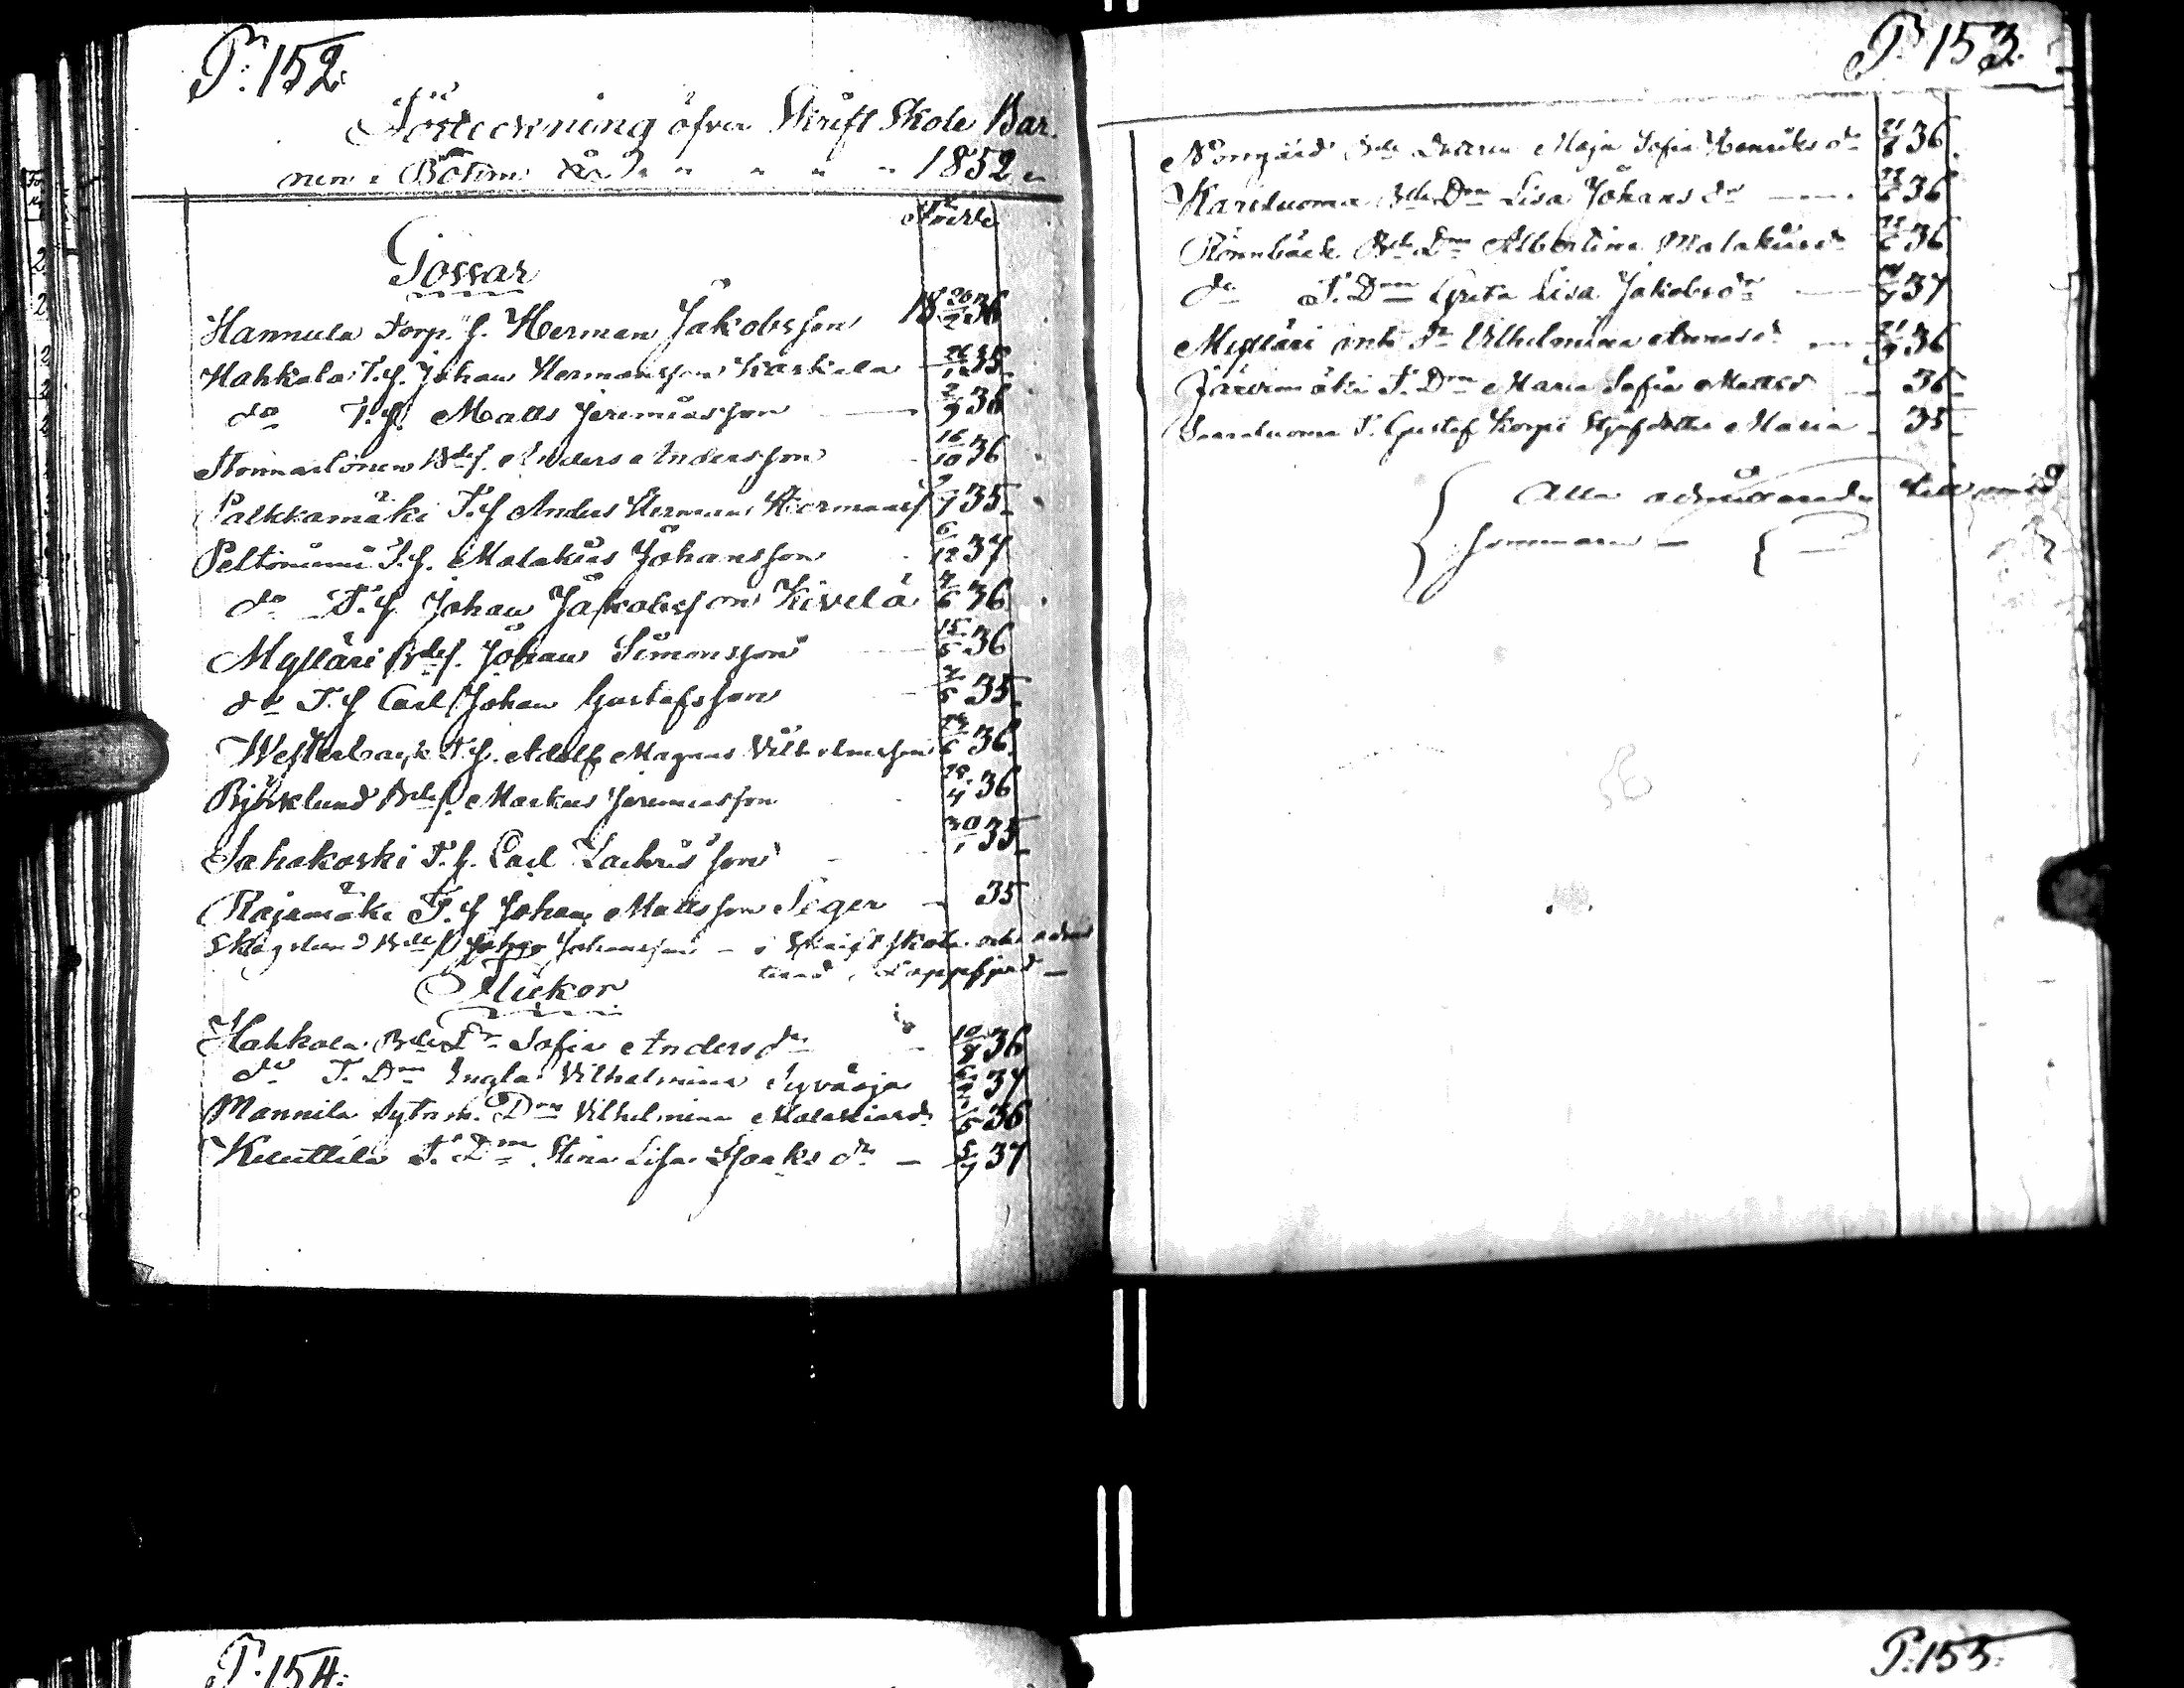 P. 152.
Förteckning öfver Skrift Skole Bar-
nen i Bötom År 1852
Gossar
Hannula Torp. s. Herman Jakobsson 18 20/2 36
Hahkala T.s. Johan Hermansson Kaskela 35
do T.s. Matts Jeremiasson 2/9 36
Bdes. Anders Andersson 16/10 36
Palkkamäki T.s Anders Herman Hermans 35
Peltoniemi T.s. Malakias Johansson 6/12 37
do T.s Johan Jakobsson Kivelä 36
Mylläri Bdes. Johan Simonsson 15/5 36
do T.s Carl Johan Gustafsson 35
Westerback T.s. Adolf Magnus Vilhelmsson 36
Björklund Bdes. Markus Jeremiasson 28/4 36
Sahakoski T.s. Carl Zachrisson 30/1 35
Rajamäki T.s Johan Mattsson Seger 35
Skoglund Bdes Johan Johansson – i Skriftskola och admit-
terad i Lappfjerd
Flickor
Hahkola Bde Dr Sofia Anders dr 10/8 36
do T. Drn Engla Vilhelmina Syväoja 37
Mannila Sytn. m. Drn Vilhelmina Malakiasdr 36
Knuttila T. Drn Stina Lisa Isaks dr 5/7 37
P. 153.
Norrgård Bde Dottern Maja Sofia Henriks dr 36
Kariluoma Bde Drn Lisa Johans dr 36
Rönnback Bde Drn Albertina Malakiasdr 36
do T. Drn Greta Lisa Jakobs dr 37
Mylläri Dr Vilhelmina 36
Järvimäki T. Drn Maria Sofia Mattsdr 36
T. Gustaf Korpi Styfdotter Maria 35
Alla admitterade till mid
sommaren –
P. 154.
P. 155.